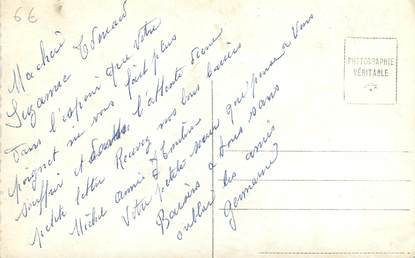 6€
Ma chère
Suzanne Edouard
Dans l'espoir que Votre
poignet ne vous fait plus
souffrir et dans l'attente d'une
petite lettre Recevez nos bons baisers
Michel Annie & Emilia
Votre petite sœur qui pense a Vous
Baisers a tous sans
oublier les amis
Germaine
PHOTOGRAPHIE
VÉRITABLE